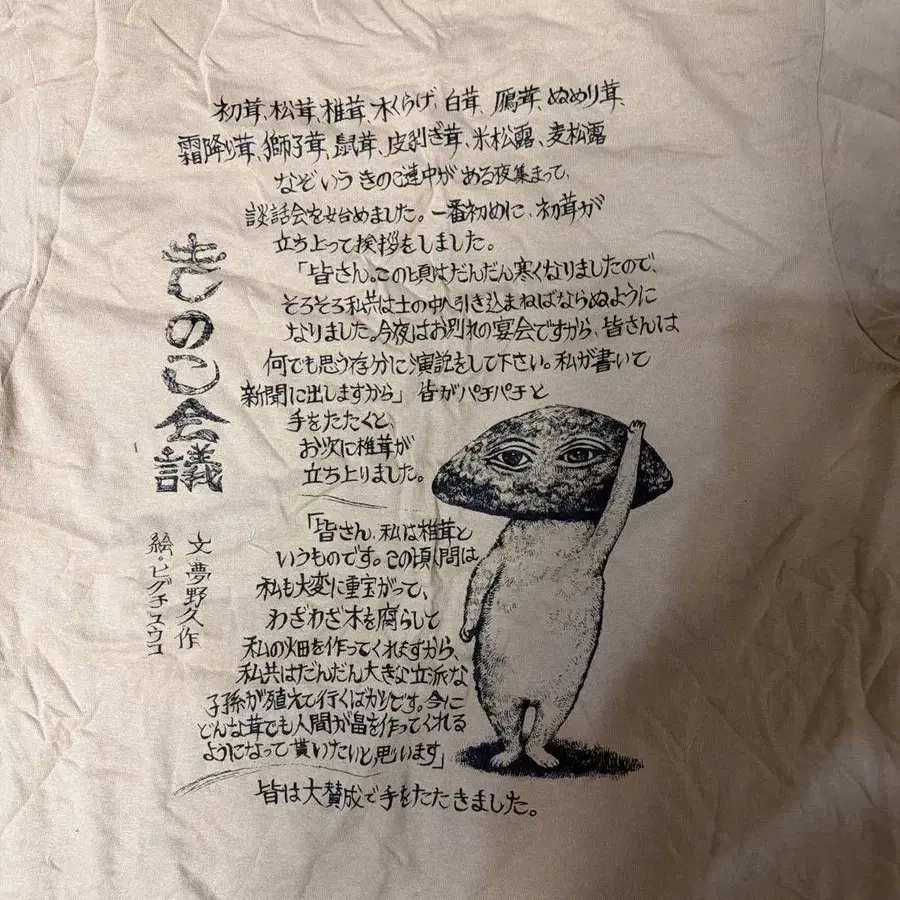 初茸、松茸、椎茸、木くらげ、白茸、鴈茸、ぬめり茸、
霜降り茸、獅子茸、鼠茸、皮剥ぎ茸、米松露、麦松露
なぞいうきのこ連中がある夜集まって、
談話会を始めました。一番初めに、初茸が
立ち上って挨拶をしました。
「皆さん。この頃はだんだん寒くなりましたので、
そろそろ私共は土の中へ引き込まねばならぬように
なりました。今夜はお別れの宴会ですから、皆さんは
何でも思う存分に演説をして下さい。私が書いて
新聞に出しますから」皆がパチパチと
手をたたくと、
お次に椎茸が
立ち上りました。
「皆さん、私は椎茸と
いうものです。この頃人間は
私も大変に重宝がって、
わざわざ木を腐らして
私の畑を作ってくれますから、
私共はだんだん大きな立派な
子孫が殖えて行くばかりです。今に
どんな茸でも人間が畠を作ってくれる
ようになって貰いたいと思います」
皆は大賛成で手をたたきました。
きのこ会議
文 夢野久作
絵・ヒグチユウコ